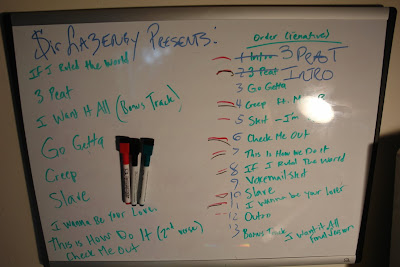 $ir LaZeRGY PResents:
If I Ruled the World
3 Peat
I Want It All (Bonus Track)
Go Getta
Creep
Slave
I Wanna Be Your Lover
This is How Do It (2nd verse)
Check Me Out
Order (tenative)
1 Intro 3 PEAT
2 3 Peat INTRO
3 Go Getta
4 Creep Ft.
5 Skit - I'm
6 Check Me Out
7 This is How We Do It
8 If I Ruled The World
9 Voicemail Skit
10 Slave
11 I wanna be your lover
12 Outro
13 Bonus Track I Want it All
Final Version